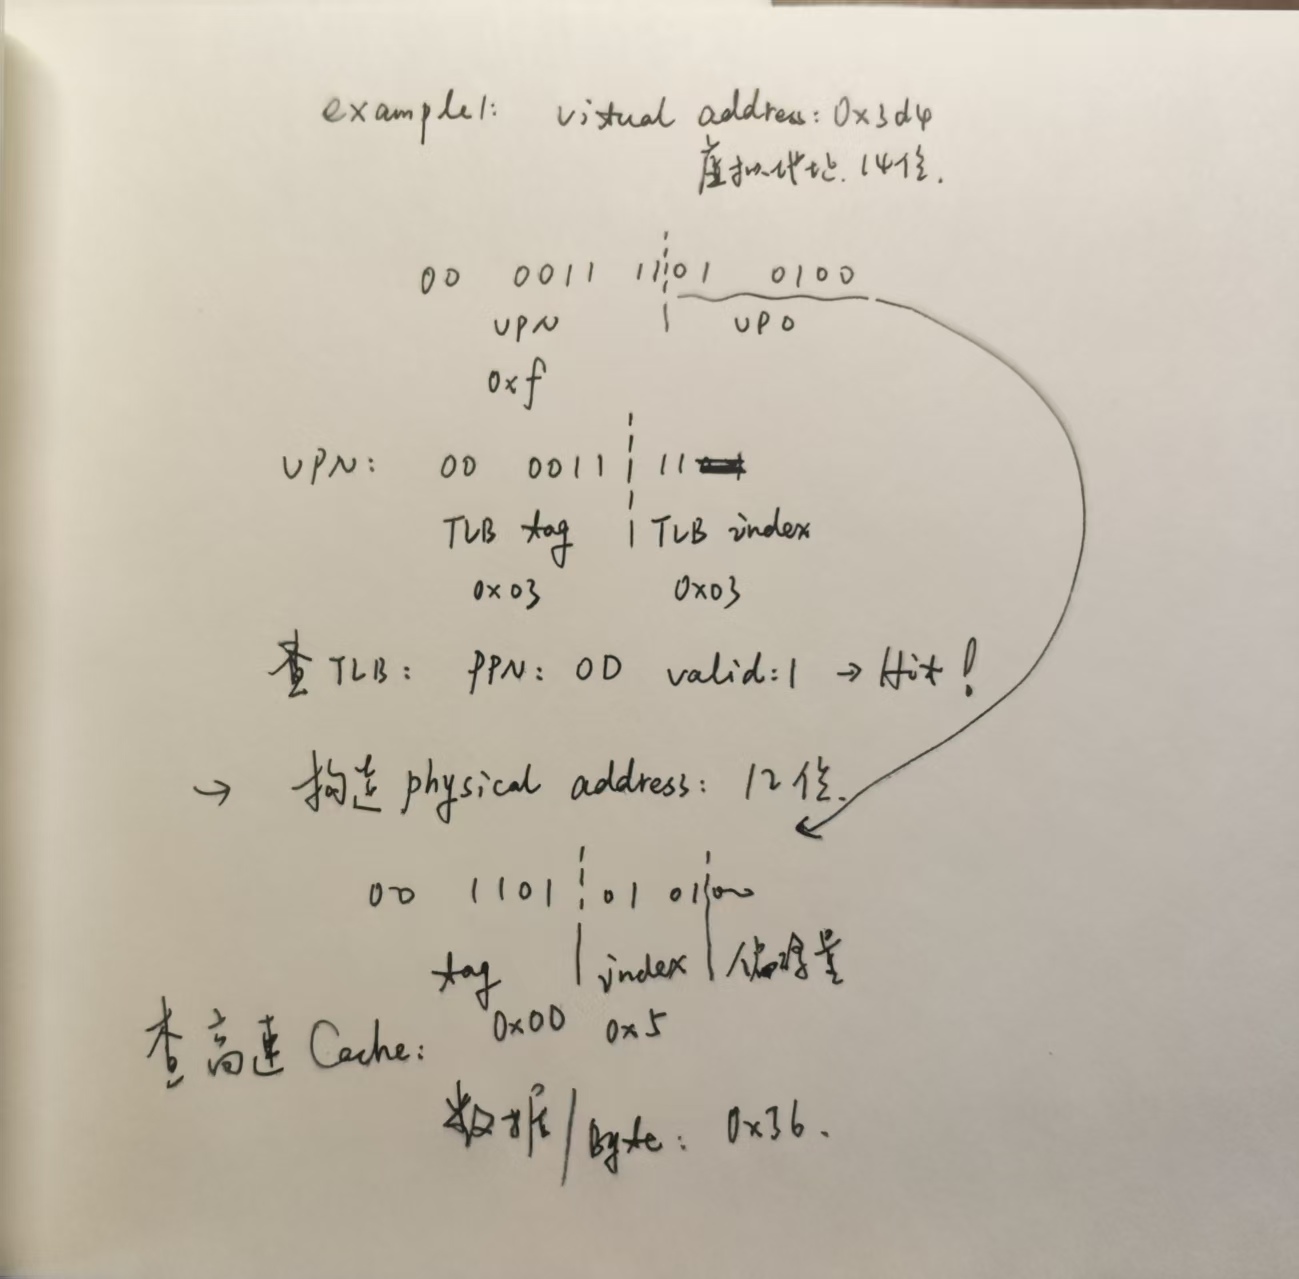 example1: virtual address: 0x3d4
虚拟地址. 14位.
00 0011 1101 0100
VPN VPO
0xf
VPN: 00 0011 11
TLB tag TLB index
0x03 0x03
查TLB: PPN: 0D valid:1 → Hit!
→ 构造physical address: 12位.
00 1101 01 0100
tag index 偏移量
0x0D 0x5
查高速Cache:
数据/Byte: 0x36.